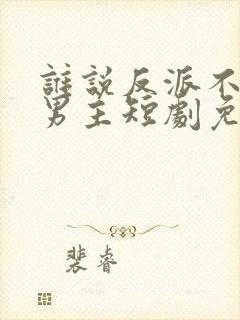 誰說反派不
男主短劇免
裴睿